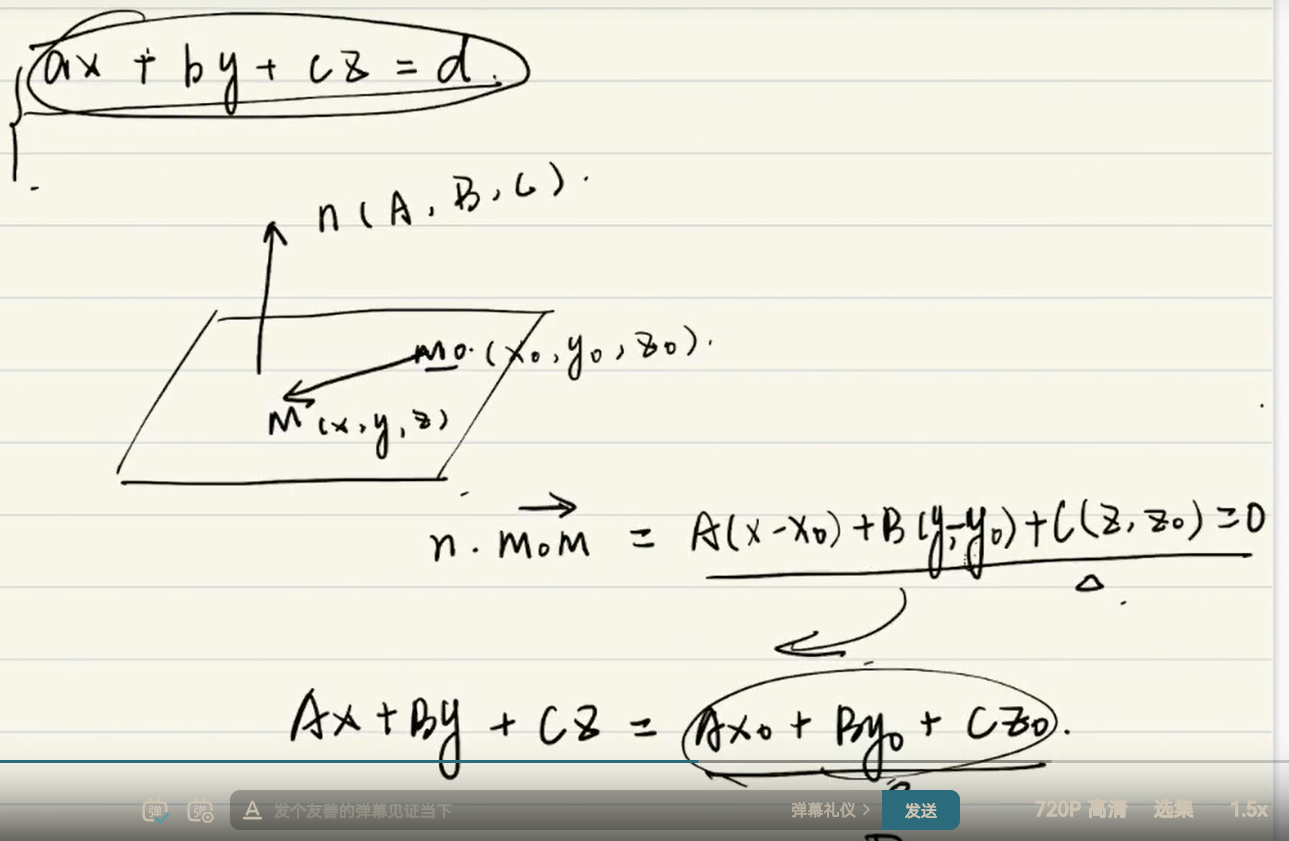 ax + by + cz = d.
n(A, B, C).
M0.(x0, y0, z0).
M(x, y, z)
n. M0M = A(x-x0)+B(y-y0)+C(z, z0)=0
Ax+By+Cz = Ax0+By0+Cz0.
A 发个友善的弹幕见证当下 弹幕礼仪 > 发送 720P 高清 选集 1.5x